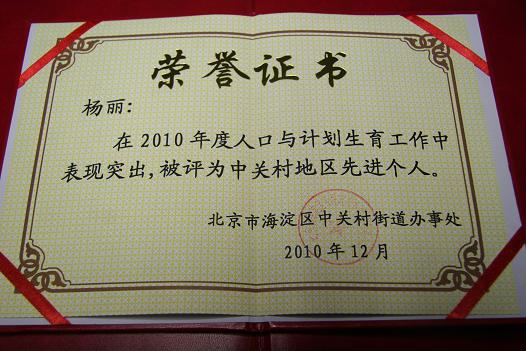 荣誉证书
杨丽：
在2010年度人口与计划生育工作中
表现突出,被评为中关村地区先进个人。
北京市海淀区中关村街道办事处
2010年12月